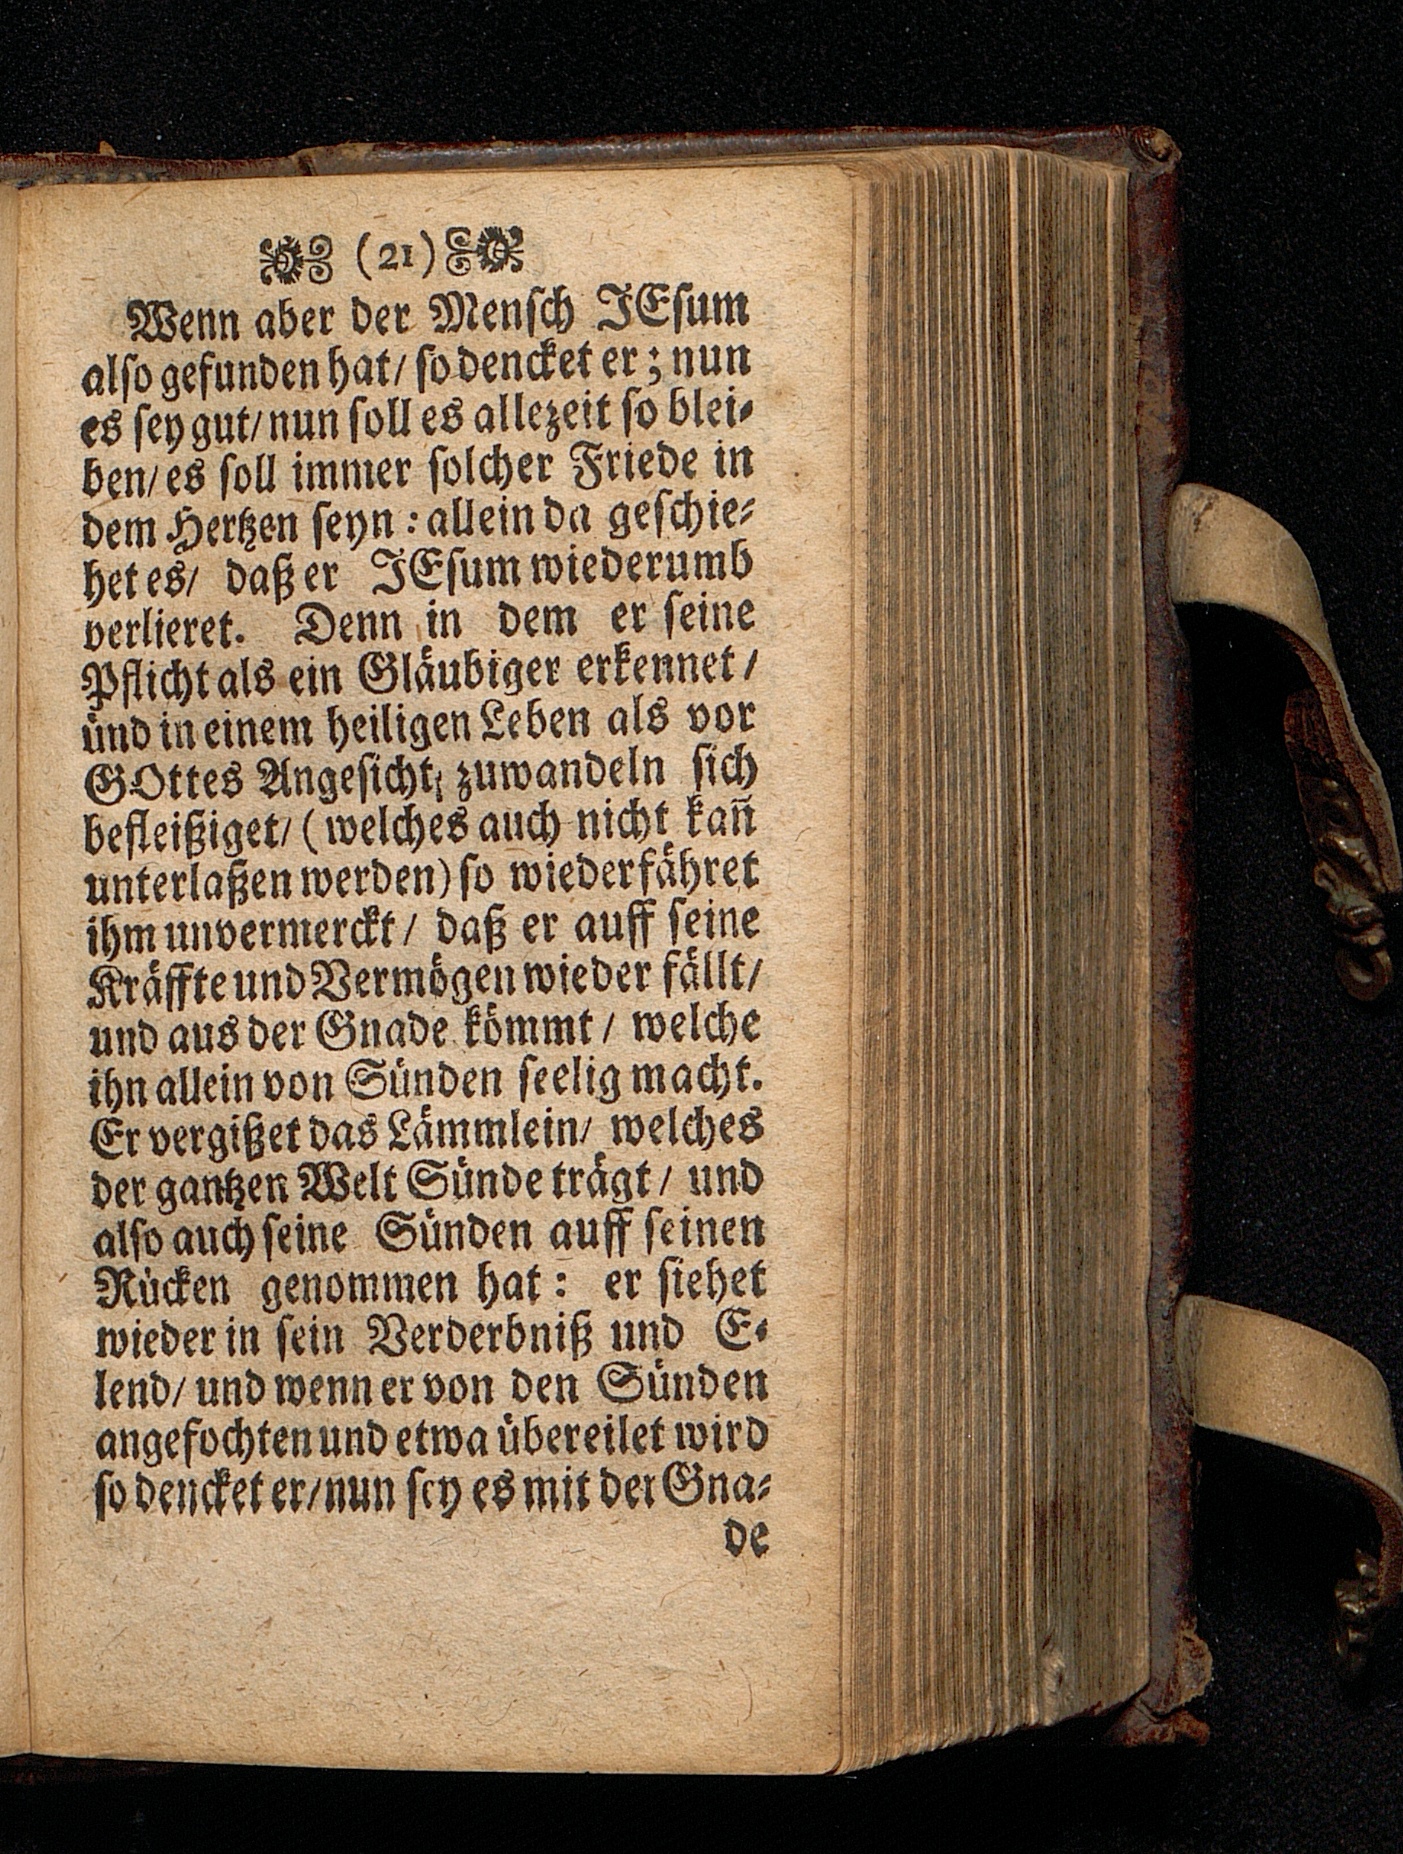 (21)
Wenn aber der Mensch JEsum
also gefunden hat/ so dencket er; nun
es sey gut/ nun soll es allezeit so blei-
ben/ es soll immer solcher Friede in
dem Hertzen seyn: allein da geschie-
het es/ daß er JEsum wiederumb
verlieret. Denn in dem er seine
Pflicht als ein Gläubiger erkennet/
und in einem heiligen Leben als vor
GOttes Angesicht/ zuwandeln sich
befleißiget/ (welches auch nicht kañ
unterlaßen werden) so wiederfähret
ihm unvermerckt/ daß er auff seine
Kräffte und Vermögen wieder fällt/
und aus der Gnade kömmt/ welche
ihn allein von Sünden seelig macht.
Er vergißet das Lämmlein/ welches
der gantzen Welt Sünde trägt/ und
also auch seine Sünden auff seinen
Rücken genommen hat: er siehet
wieder in sein Verderbniß und E-
lend/ und wenn er von den Sünden
angefochten und etwa übereilet wird
so dencket er/ nun sey es mit der Gna-
de